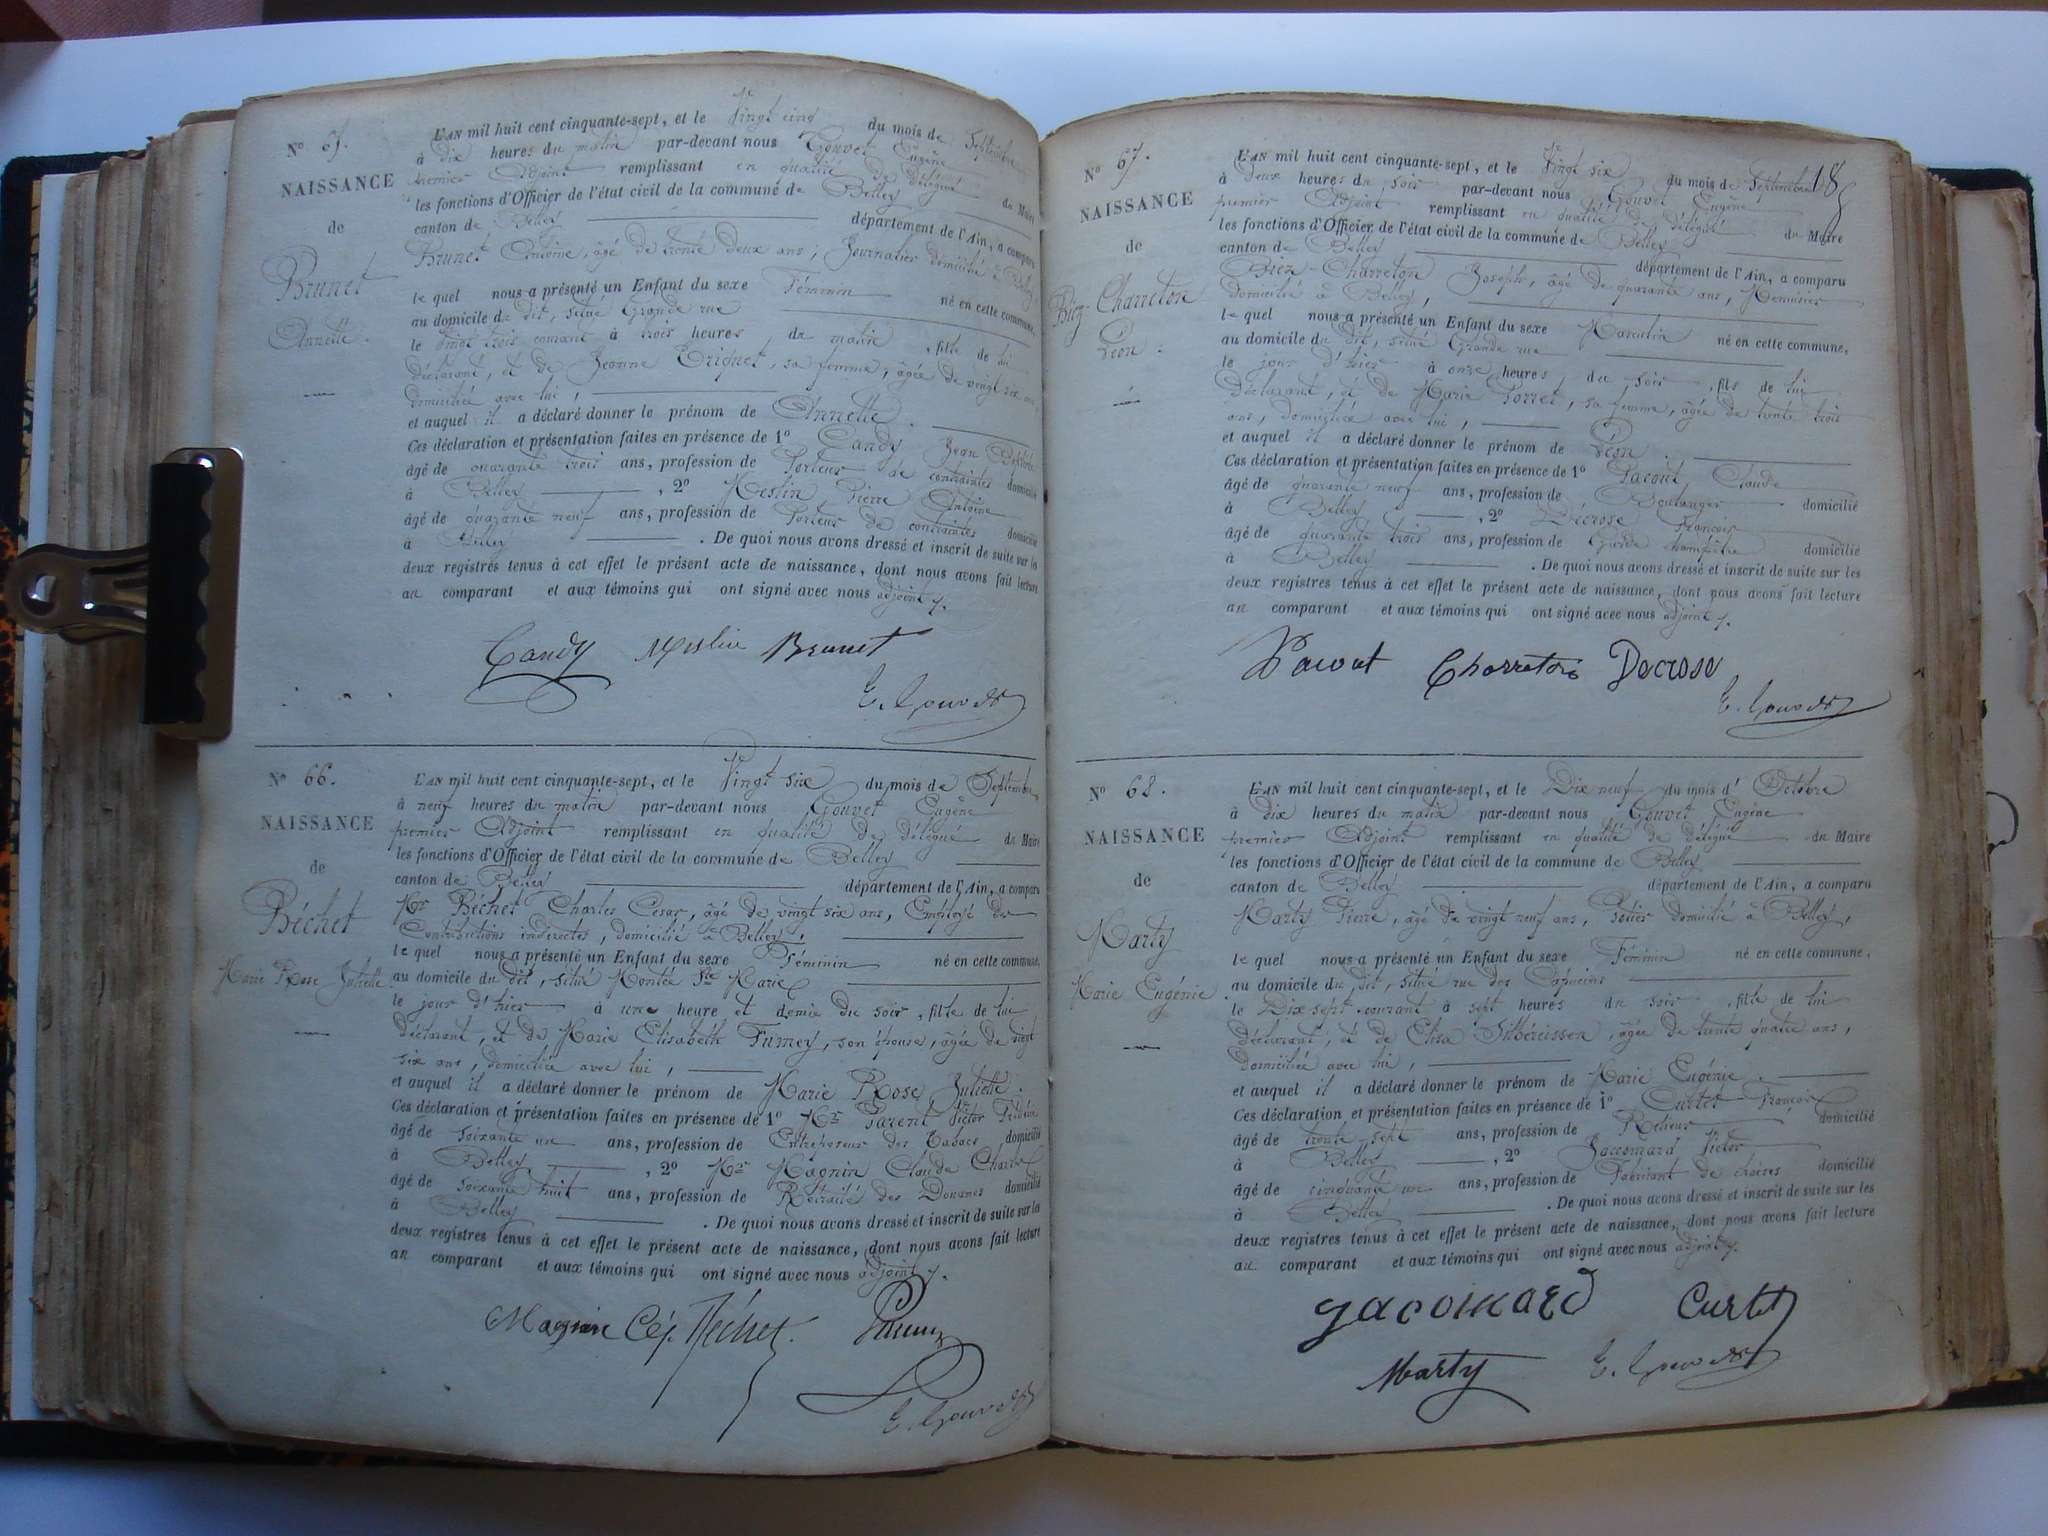 N° 65.
NAISSANCE
de
Brunet
Annette.
L'AN mil huit cent cinquante-sept, et le Vingt cinq du mois de Septembre
à dix heures du matin par-devant nous Gouvet Eugène
premier Adjoint remplissant en qualité de délégué du Maire
les fonctions d'Officier de l'état civil de la commune de Belley
canton de Belley département de l'Ain, a comparu
Brunet Antoine, âgé de trente deux ans, Journalier domicilié à Belley
le quel nous a présenté un Enfant du sexe Féminin né en cette commune,
au domicile du dit, situé Grande rue
le vingt trois courant à trois heures du matin, fille de lui
déclarant, et de Jeanne, sa femme, âgée de vingt six ans,
domiciliée avec lui,
et auquel il a déclaré donner le prénom de Annette.
Ces déclaration et présentation faites en présence de 1° Candy Jean Baptiste
âgé de quarante trois ans, profession de Porteur de contraintes domicilié
à Belley, 2° Meslin Pierre Antoine
âgé de quarante neuf ans, profession de Porteur de contraintes domicilié
à Belley. De quoi nous avons dressé et inscrit de suite sur les
deux registres tenus à cet effet le présent acte de naissance, dont nous avons fait lecture
au comparant et aux témoins qui ont signé avec nous adjoint
Candy Meslin Brunet
E. Gouvet
N° 66.
NAISSANCE
de
Béchet
Marie Rose Juliette.
L'AN mil huit cent cinquante-sept, et le Vingt six du mois de Septembre
à neuf heures du matin par-devant nous Gouvet Eugène
premier Adjoint remplissant en qualité de délégué du Maire
les fonctions d'Officier de l'état civil de la commune de Belley
canton de Belley département de l'Ain, a comparu
Mr Béchet Charles Cesar, âgé de vingt six ans, Employé des
Contributions indirectes, domicilié à Belley,
le quel nous a présenté un Enfant du sexe Féminin né en cette commune,
au domicile du dit, situé Montée Ste Marie
le jour d'hier à une heure et demie du soir, fille de lui
déclarant, et de Marie Elisabeth Fumey, son épouse, âgée de vingt
six ans, domiciliée avec lui,
et auquel il a déclaré donner le prénom de Marie Rose Juliette.
Ces déclaration et présentation faites en présence de 1° Mr Parent Victor
âgé de soixante un ans, profession de Entreposeur des Tabacs domicilié
à Belley, 2° Mr Magnin Claude Charles
âgé de soixante huit ans, profession de Retraité des Douanes domicilié
à Belley. De quoi nous avons dressé et inscrit de suite sur les
deux registres tenus à cet effet le présent acte de naissance, dont nous avons fait lecture
au comparant et aux témoins qui ont signé avec nous adjoint
Magnin Béchet Parent
E. Gouvet
N° 67.
NAISSANCE
de
Biez-Charreton
Léon.
L'AN mil huit cent cinquante-sept, et le Vingt six du mois de Septembre
à deux heures du soir par-devant nous Gouvet Eugène
premier Adjoint remplissant en qualité de délégué du Maire
les fonctions d'Officier de l'état civil de la commune de Belley
canton de Belley département de l'Ain, a comparu
Biez-Charreton Joseph, âgé de quarante ans, Menuisier
domicilié à Belley,
le quel nous a présenté un Enfant du sexe Masculin né en cette commune,
au domicile du dit, situé Grande rue
le jour d'hier à onze heures du soir, fils de lui
déclarant, et de Marie Porret, sa femme, âgée de trente trois
ans, domiciliée avec lui,
et auquel il a déclaré donner le prénom de Léon.
Ces déclaration et présentation faites en présence de 1° Pacout Claude
âgé de quarante neuf ans, profession de Boulanger domicilié
à Belley, 2° Décrose François
âgé de quarante trois ans, profession de Garde champêtre domicilié
à Belley. De quoi nous avons dressé et inscrit de suite sur les
deux registres tenus à cet effet le présent acte de naissance, dont nous avons fait lecture
au comparant et aux témoins qui ont signé avec nous adjoint
Pacout Charreton Decrose
E. Gouvet
N° 68.
NAISSANCE
de
Marty
Marie Eugénie.
L'AN mil huit cent cinquante-sept, et le Dix neuf du mois d'Octobre
à dix heures du matin par-devant nous Gouvet Eugène
premier Adjoint remplissant en qualité de délégué du Maire
les fonctions d'Officier de l'état civil de la commune de Belley
canton de Belley département de l'Ain, a comparu
Marty Pierre, âgé de vingt neuf ans, domicilié à Belley,
le quel nous a présenté un Enfant du sexe Féminin né en cette commune,
au domicile du dit, situé rue des Capucins
le Dix sept courant à sept heures du soir, fille de lui
déclarant, et de Elisa, âgée de trente quatre ans,
domiciliée avec lui,
et auquel il a déclaré donner le prénom de Marie Eugénie.
Ces déclaration et présentation faites en présence de 1° Curtet François
âgé de trente sept ans, profession de Relieur domicilié
à Belley, 2° Jacomard Victor
âgé de cinquante un ans, profession de Fabricant de chaises domicilié
à Belley. De quoi nous avons dressé et inscrit de suite sur les
deux registres tenus à cet effet le présent acte de naissance, dont nous avons fait lecture
au comparant et aux témoins qui ont signé avec nous adjoint
Jacomard Curtet
Marty E. Gouvet